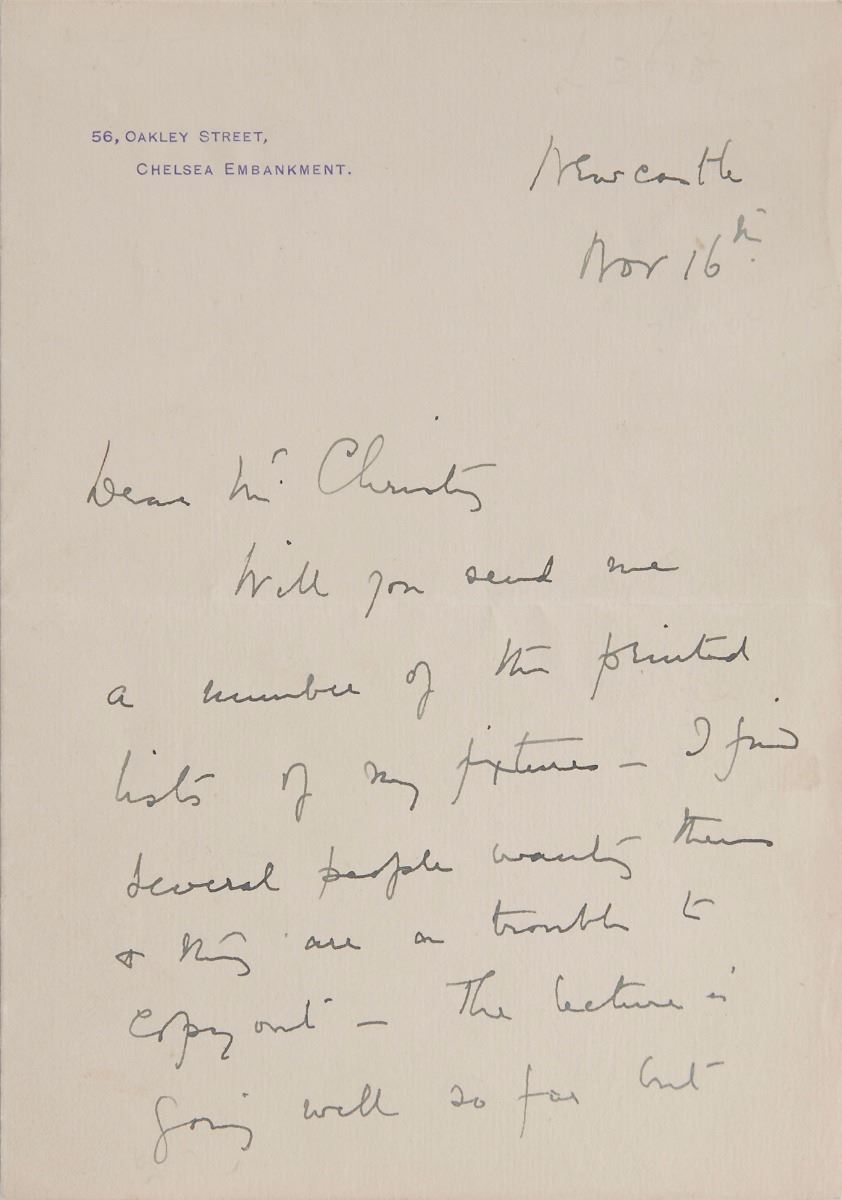 56, OAKLEY STREET,
CHELSEA EMBANKMENT.
Newcastle
Nov 16th.
Dear Mr. Christy
Will you send me
a number of the printed
lists of my fixtures – I find
several people wanting them
& they are a trouble to
copy out – The lecture is
going well so far but